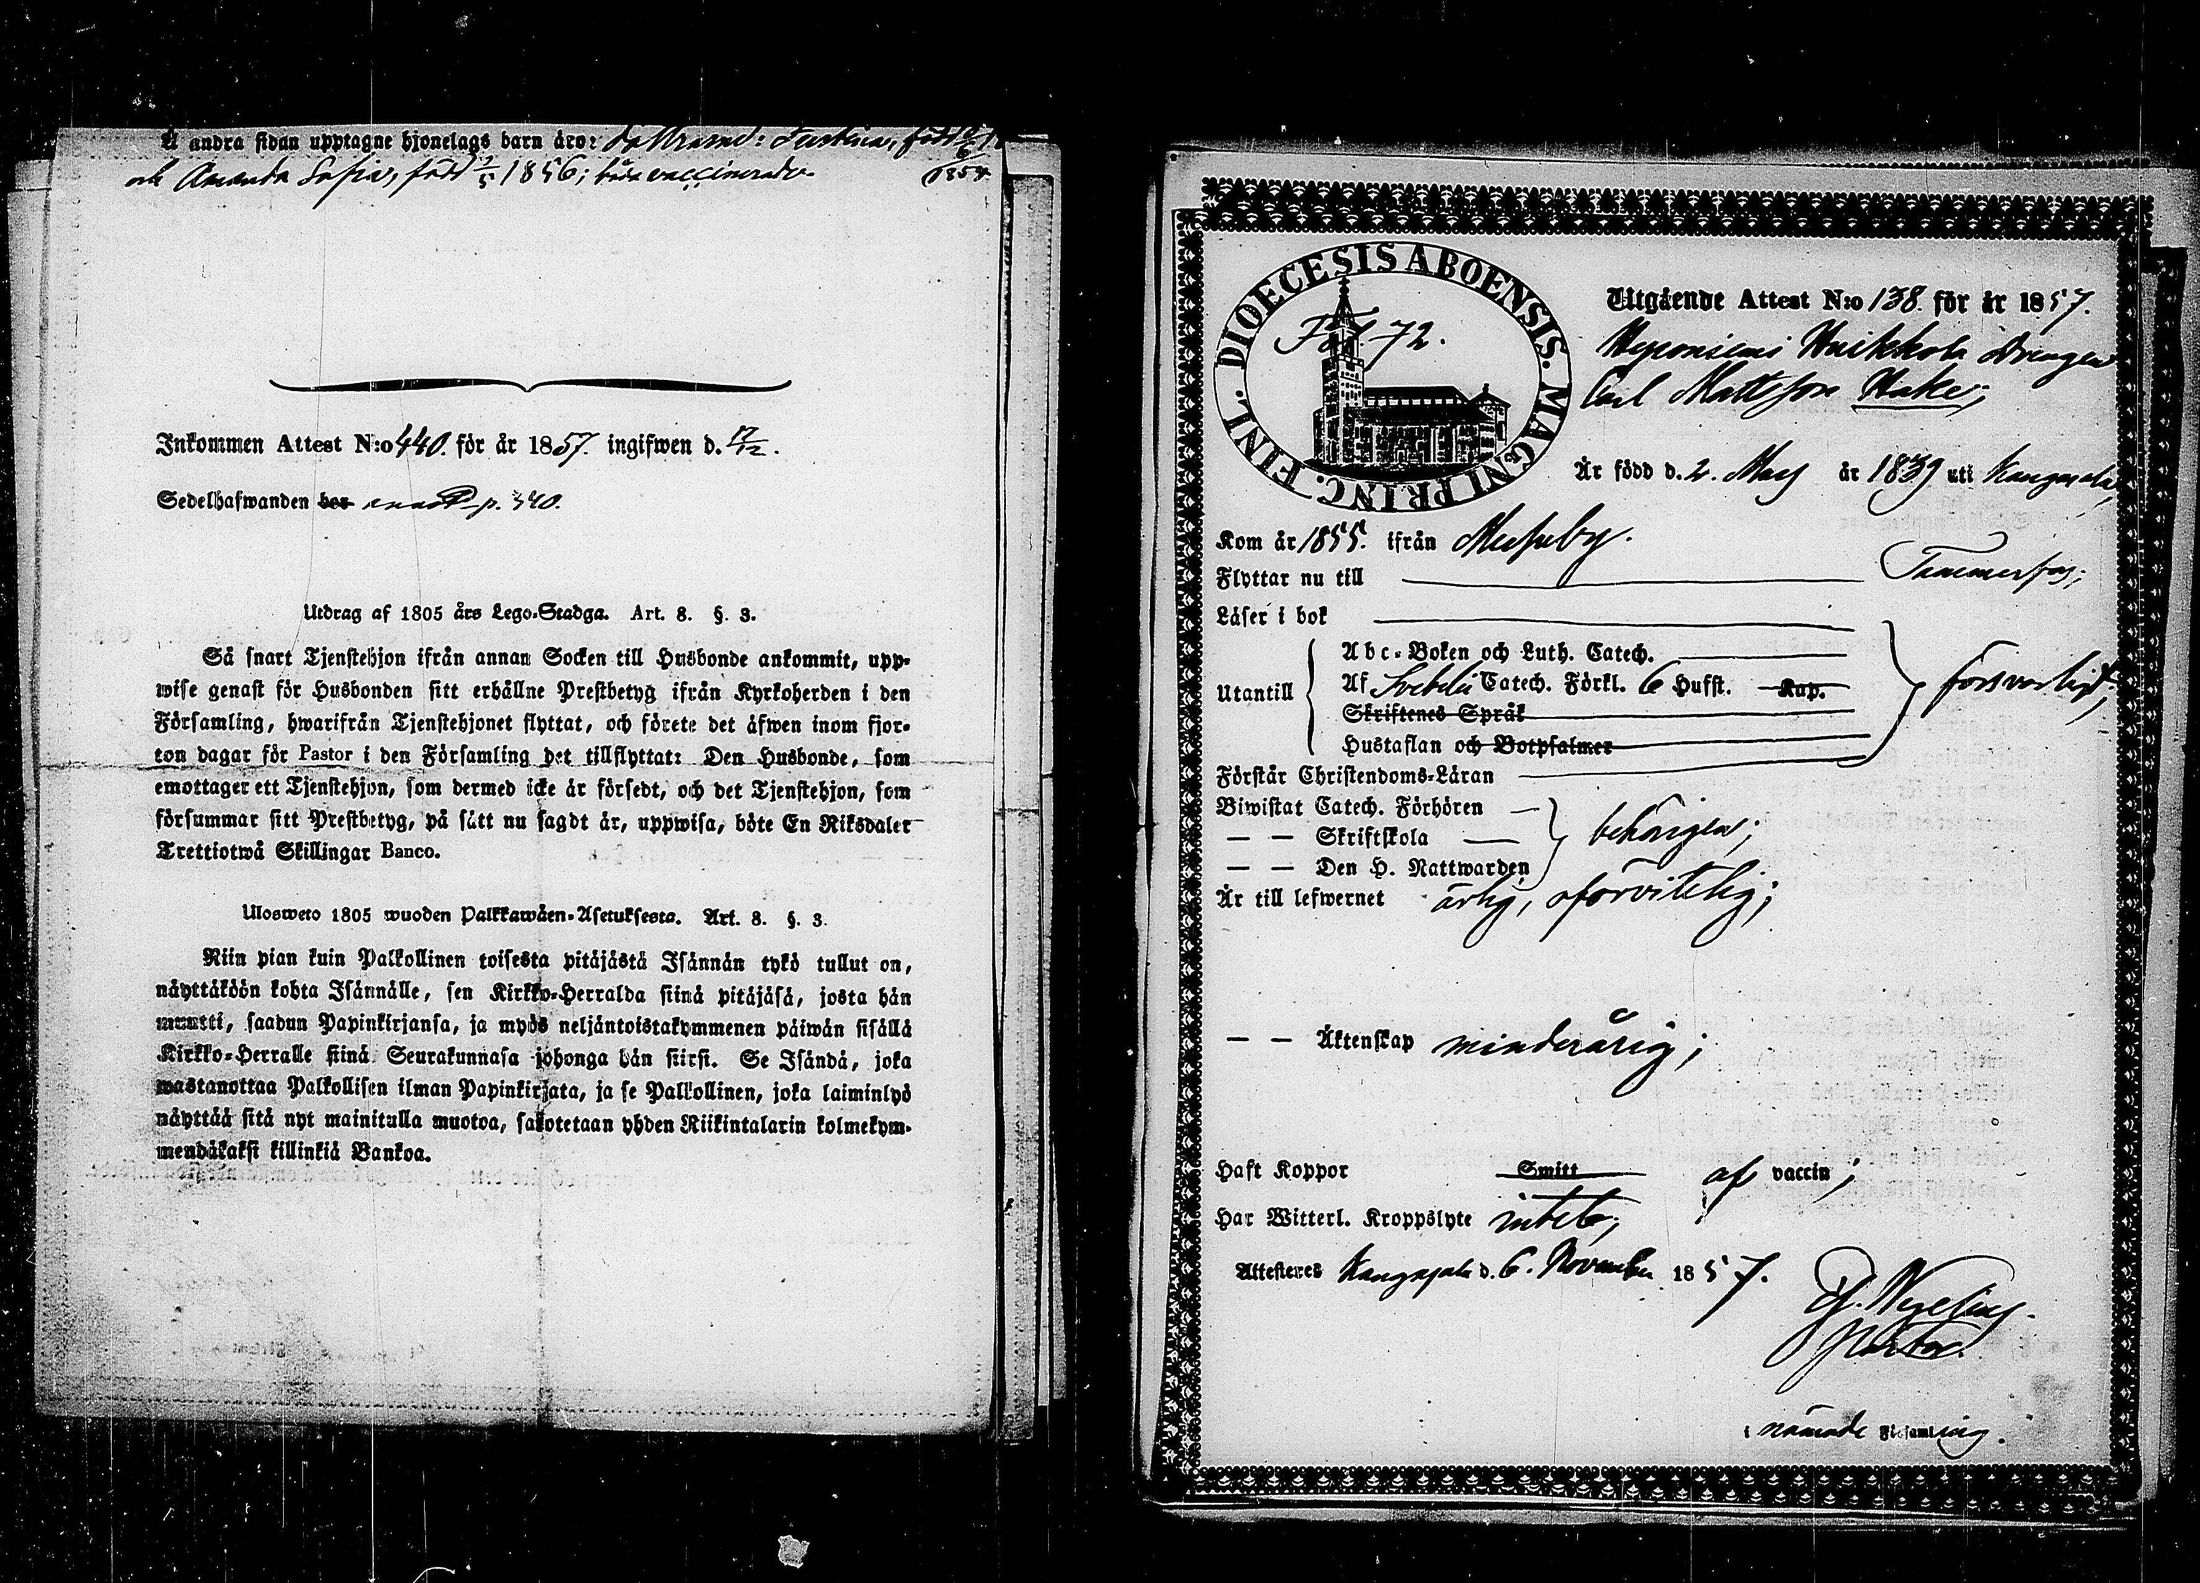 å andra sidan upptagne hjonelags barn äro: döttrarne: Justina, född 4/6 1854
och Amanda Sofia, född 1/5 1856; båda vaccinerade.
Inkommen Attest N:o 440. för år 1857. ingifwen d. 17/12.
Sedelhafwanden bor p. 340.
Utdrag af 1805 års Lego-Stadga. Art. 8. §. 3.
Så snart Tjenstehjon ifrån annan Socken till Husbonde ankommit, upp-
wise genast för Husbonden sitt erhållne Prestbetyg ifrån Kyrkoherden i den
Församling, hwarifrån Tjenstehjonet flyttat, och förete det äfwen inom fjor-
ton dagar för Pastor i den Församling det tillflyttat: Den Husbonde, som
emottager ett Tjenstehjon, som dermed icke är försedt, och det Tjenstehjon, som
försummar sitt Prestbetyg, på sätt nu sagdt är, uppwisa, böte En Riksdaler
Trettiotwå Skillingar Banco.
Ulosweto 1805 wuoden Palkkawäen-Asetuksesta. Art. 8. §. 3.
Niin pian kuin Palkollinen toisesta pitäjästä Isännän tykö tullut on,
näyttäköön kohta Isännälle, sen Kirkko-Herralda siinä pitäjäsä, josta hän
muutti, saadun Papinkirjansa, ja myös neljäntoistakymmenen päiwän sisällä
Kirkko-Herralle siinä Seurakunnasa johonga hän siirsi. Se Isändä, joka
wastanottaa Palkollisen ilman Papinkirjata, ja se Palkollinen, joka laiminlyö
näyttää sitä nyt mainitulla muotoa, sakotetaan yhden Riikintalarin kolmekym-
mendäkaksi killinkiä Bankoa.
DIOECESIS ABOENSIS. MAGNI PRINC. FINL.
Fol. 72.
Utgående Attest N:o 138. för år 1857.
Heponiemi Huikkola Drengen
Carl Mattsson Hake;
Är född d. 2. Maij år 1839 uti Kangasala,
Kom år 1855. ifrån Messuby.
Flyttar nu till Tammerfors;
Läser i bok
Utantill
Abc-Boken och Luth. Catech.
Af Svebelii Catech. Förkl. 6 Hufst. Kap.
Skriftenes Språk
Hustaflan och Botpsalmer
försvarligt;
Förstår Christendoms-Läran
Biwistat Catech. Förhören
— — Skriftskola
— — Den H. Nattwarden
behörigen;
Är till lefwernet ärlig, oförvitelig;
— — Äktenskap minderårig;
Haft Koppor Smitt af vaccin;
Har Witterl. Kroppslyte intet;
Attesteres Kangasala d. 6. November 1857.
Pastor
i nämnde Församling.